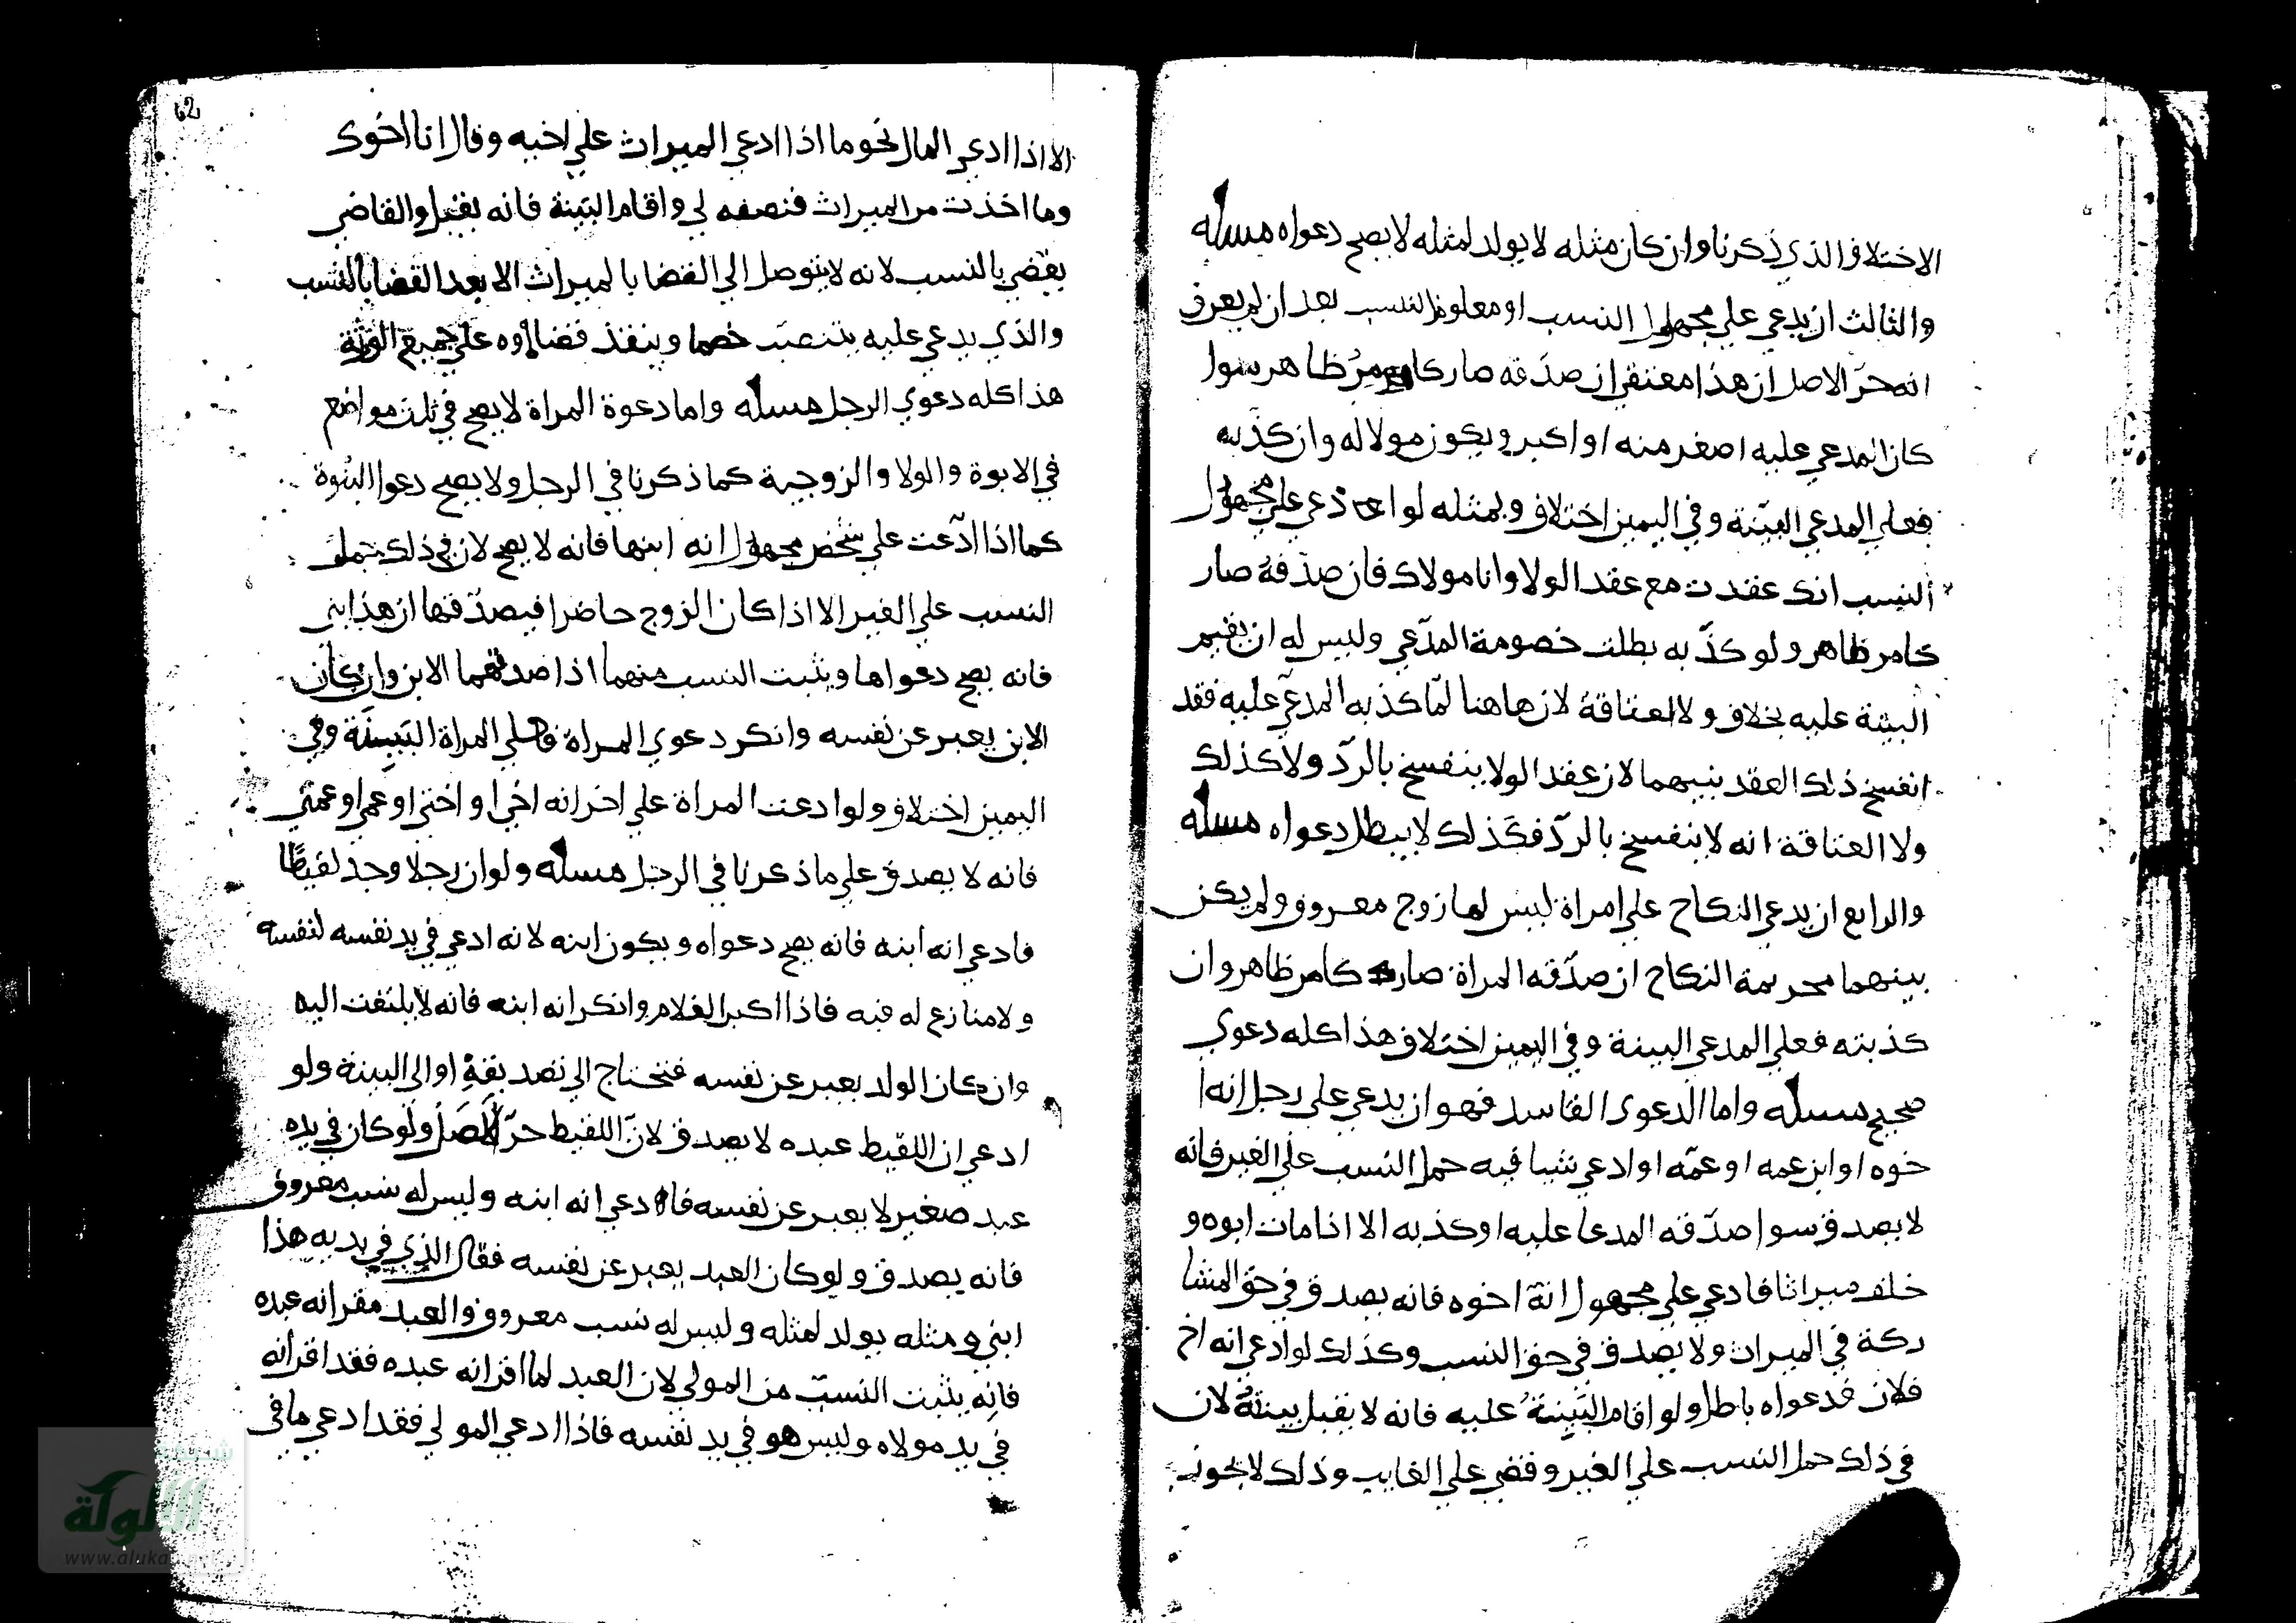 الاختلاف الذي ذكرنا وان كان مثله لا يولد لمثله لا يصح دعواه مسله
والثالث ان يدعي علي مجهول النسب او معلوم النسب بعد ان لم يعرف
انه حرّ الاصل ان هذا معتقي ان صدّقه صار كامرٍ ظاهر سوا
كان المدعي عليه اصغر منه او اكبر ويكون مولا له وان كذّبه
فعلي المدعي البيّنة وفي اليمين اختلاف وبمثله لو ادعي علي مجهول
النسب انك عقدت مع عقد الولا وانا مولاك فان صدّقه صار
كامر ظاهر ولو كذّبه بطلت خصومة المدّعي وليس له ان يقيم
البينة عليه بخلاف ولا العتاقة لان هاهنا لمّا كذبه المدعي عليه فقد
انفسخ ذلك العقد بينهما لان عقد الولا ينفسخ بالردّ ولا كذلك
ولا العتاقة انه لا ينفسخ بالردّ فكَذلك لا يبطل دعواه مسله
والرابع ان يدعي النكاح علي امراة ليس لها زوج معروف ولم يكن
بينهما محريمة النكاح ان صدّقه المراة صار كامر ظاهر وان
كذبته فعلي المدعي البينة وفي اليمين اختلاف هذا كله دعوي
صحيح مسله واما الدعوي الفاسد فهو ان يدعي علي رجل انه ا
خوه او ابن عمه او عمّه او ادعي شيا فيه حمل النسب علي الغير فانه
لا يصدق سوا صدّقه المدعا عليه او كذبه الا اذا مات ابوه و
خلف ميراثا فادعي علي مجهول انه اخوه فانه يصدق في حق المشا
ركة في الميراث ولا يصدق في حق النسب وكذلك لو ادعي انه اخ
فلان فدعواه باطل ولو اقام البَيِنةُ عليه فانه لا يقبل بينتهُ لان
في ذلك حمل النسب علي الغير وقضي علي الغايب وذلك لا يجوز
62
الا اذا ادعي المال نحو ما اذا ادعي الميراث علي اخيه وقال انا اخوك
وما اخذت من الميراث فنصفه لي واقام البيّنة فانه يقبل والقاضي
يقضي بالنسب لانه لا يتوصل الي القضا بالميراث الا بعد القضا بالنسب
والذي يدعي عليه ينتصب خصما وينفذ قضاؤه علي جميع الورثة
هذا كله دعوي الرجل مسله واما دعوة المراة لا يصح في ثلث مواضع
في الابوة والولا والزوجية كما ذكرنا في الرجل ولا يصح دعوا البنُوة
كما اذا ادّعت علي شخص مجهول انه ابنها فانه لا يصح لان في ذلك تحمل
النسب علي الغير الا اذا كان الزوج حاضرا فيصدّقها ان هذا ابني
فانه يصح دعواها ويثبت النسب منهما اذا صدقهما الابن وان كان
الابن يعبر عن نفسه وانكر دعوي المراة فعلي المراة البَيِنَة وفي
اليمين اختلاف ولو ادعت المراة علي اخر انه اخي او اختي او عمي او عمتي
فانه لا يصدق علي ما ذكرنا في الرجل مسله ولو ان رجلا وجد لقيطًا
فادعي انه ابنه فانه يصح دعواه ويكون ابنه لانه ادعي في يد نفسه لنفسه
ولا منازع له فيه فاذا اكبر الغلام وانكر انه ابنه فانه لا يلتفت اليه
وان كان الولد يعبر عن نفسه فتحتاج الي تصديقهِ او الي البينة ولو
ادعي ان اللقيط عبده لا يصدق لانّ اللقيط حرّ الاصل ولو كان في يده
عبد صغير لا يعبر عن نفسه فادعي انه ابنه وليس له نسب معروف
فانه يصدق ولو كان العبد يعبر عن نفسه فقال الذي في يديه هذا
ابني ومثله يولد لمثله وليس له نسب معروف والعبد مقر انه عبده
فانه يثبت النسب من المولي لان العبد لما اقر انه عبده فقد اقر انه
في يد مولاه وليس هو في يد نفسه فاذا ادعي المولي فقد ادعي ما في
شبكة
الألوكة